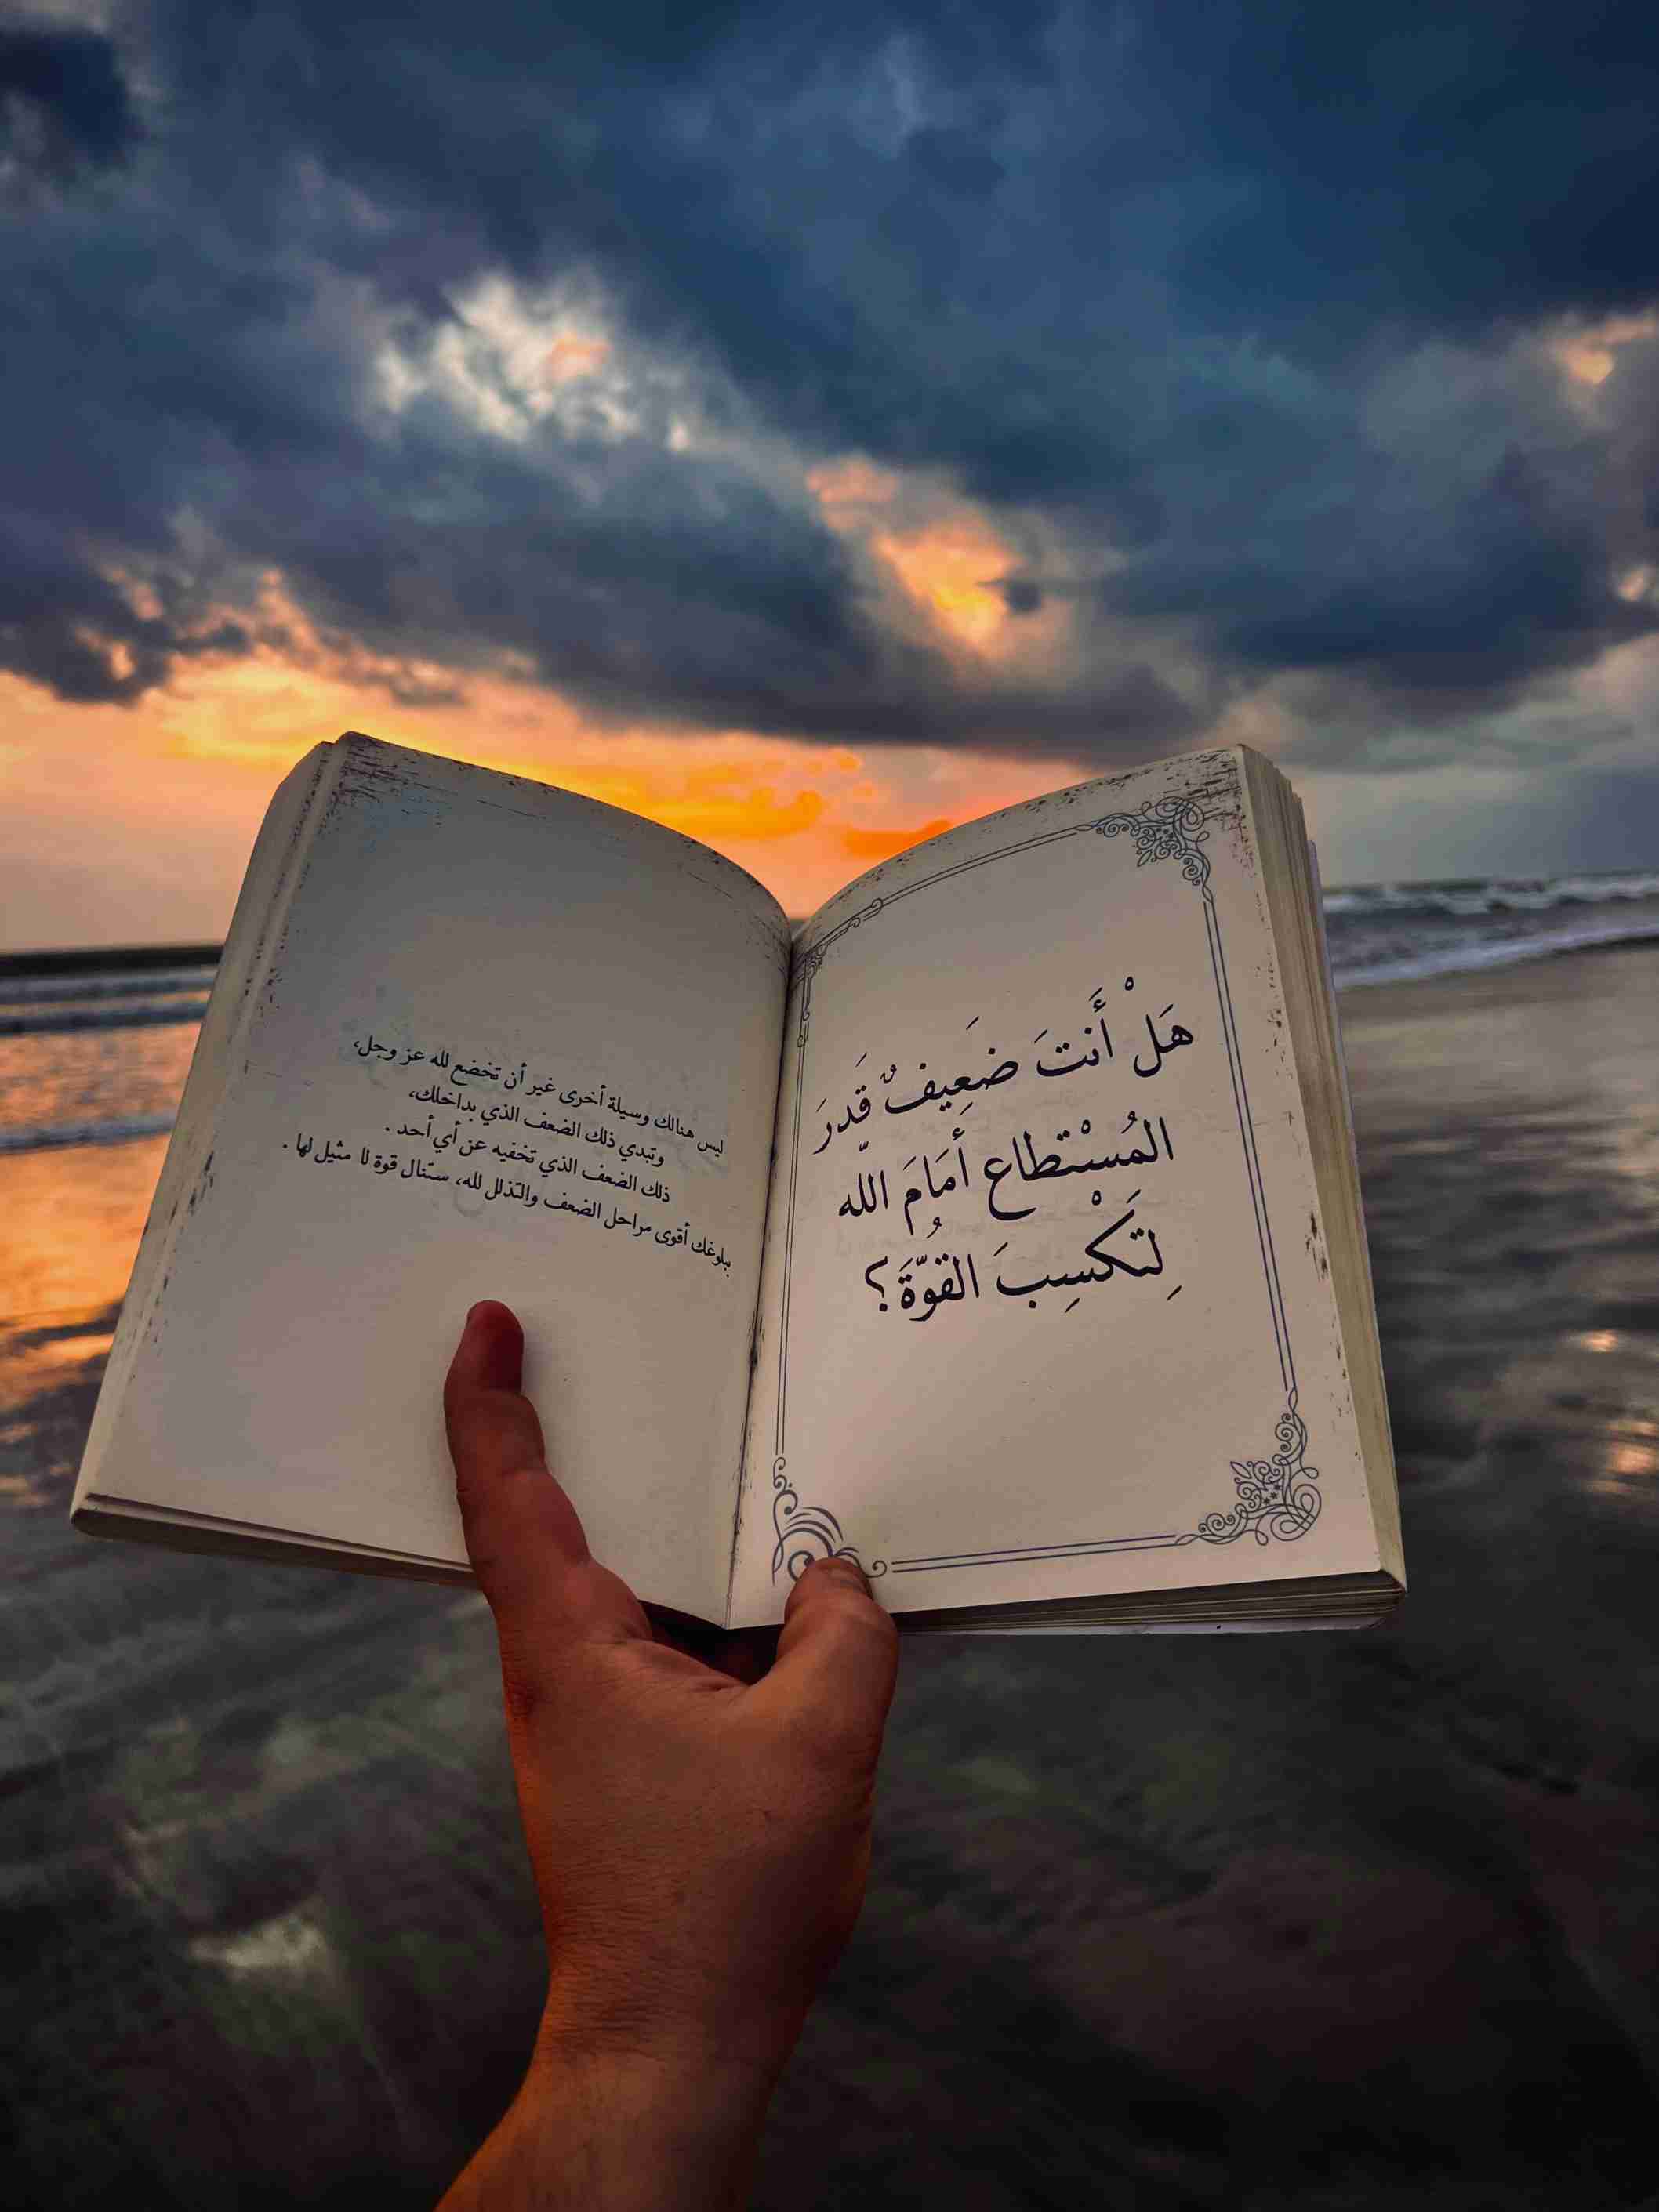 هَلْ أَنتَ ضَعِيفٌ قَدرَ
المُسْتطاع أمَامَ اللّه
لِتَكْسِبَ القُوّةَ؟
ليس هنالك وسيلة أخرى غير أن تخضع لله عز وجل،
وتبدي ذلك الضعف الذي بداخلك،
ذلك الضعف الذي تخفيه عن أي أحد .
ببلوغك أقوى مراحل الضعف والتذلل لله، ستنال قوة لا مثيل لها .